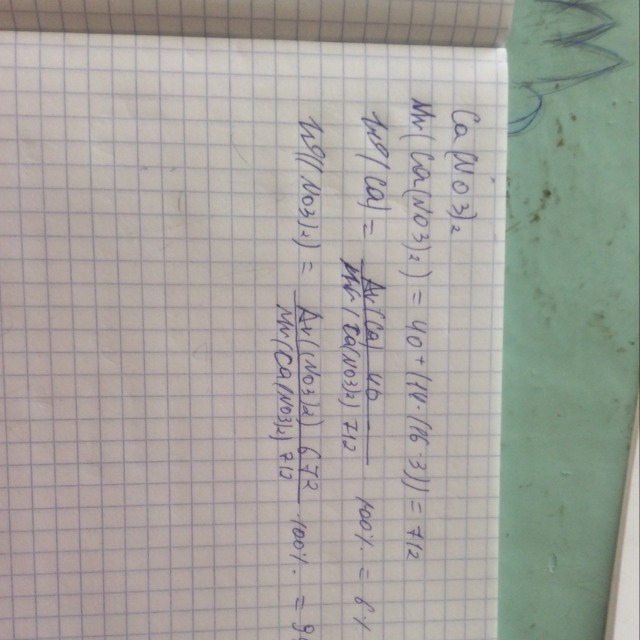 Ca(NO3)2
Mr(Ca(NO3)2) = 40+(14·(16·3)) = 712
W(Ca) = Ar(Ca) 40 / Mr(Ca(NO3)2) 712 100% = 6%
W(NO3)2) = Ar(NO3)2) 672 / Mr(Ca(NO3)2) 712 100% = 9